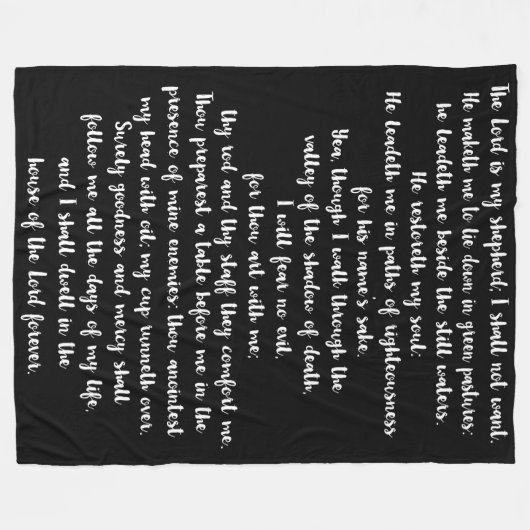 The Lord is my shepherd, I shall not want.
He maketh me to lie down in green pastures:
he leadeth me beside the still waters.
He restoreth my soul:
He leadeth me in paths of righteousness
for his name's sake.
Yea, though I walk through the
valley of the shadow of death,
I will fear no evil,
for thou art with me;
thy rod and thy staff they comfort me.
Thou preparest a table before me in the
presence of mine enemies: thou anointest
my head with oil, my cup runneth over.
Surely goodness and mercy shall
follow me all the days of my life;
and I shall dwell in the
house of the Lord forever.